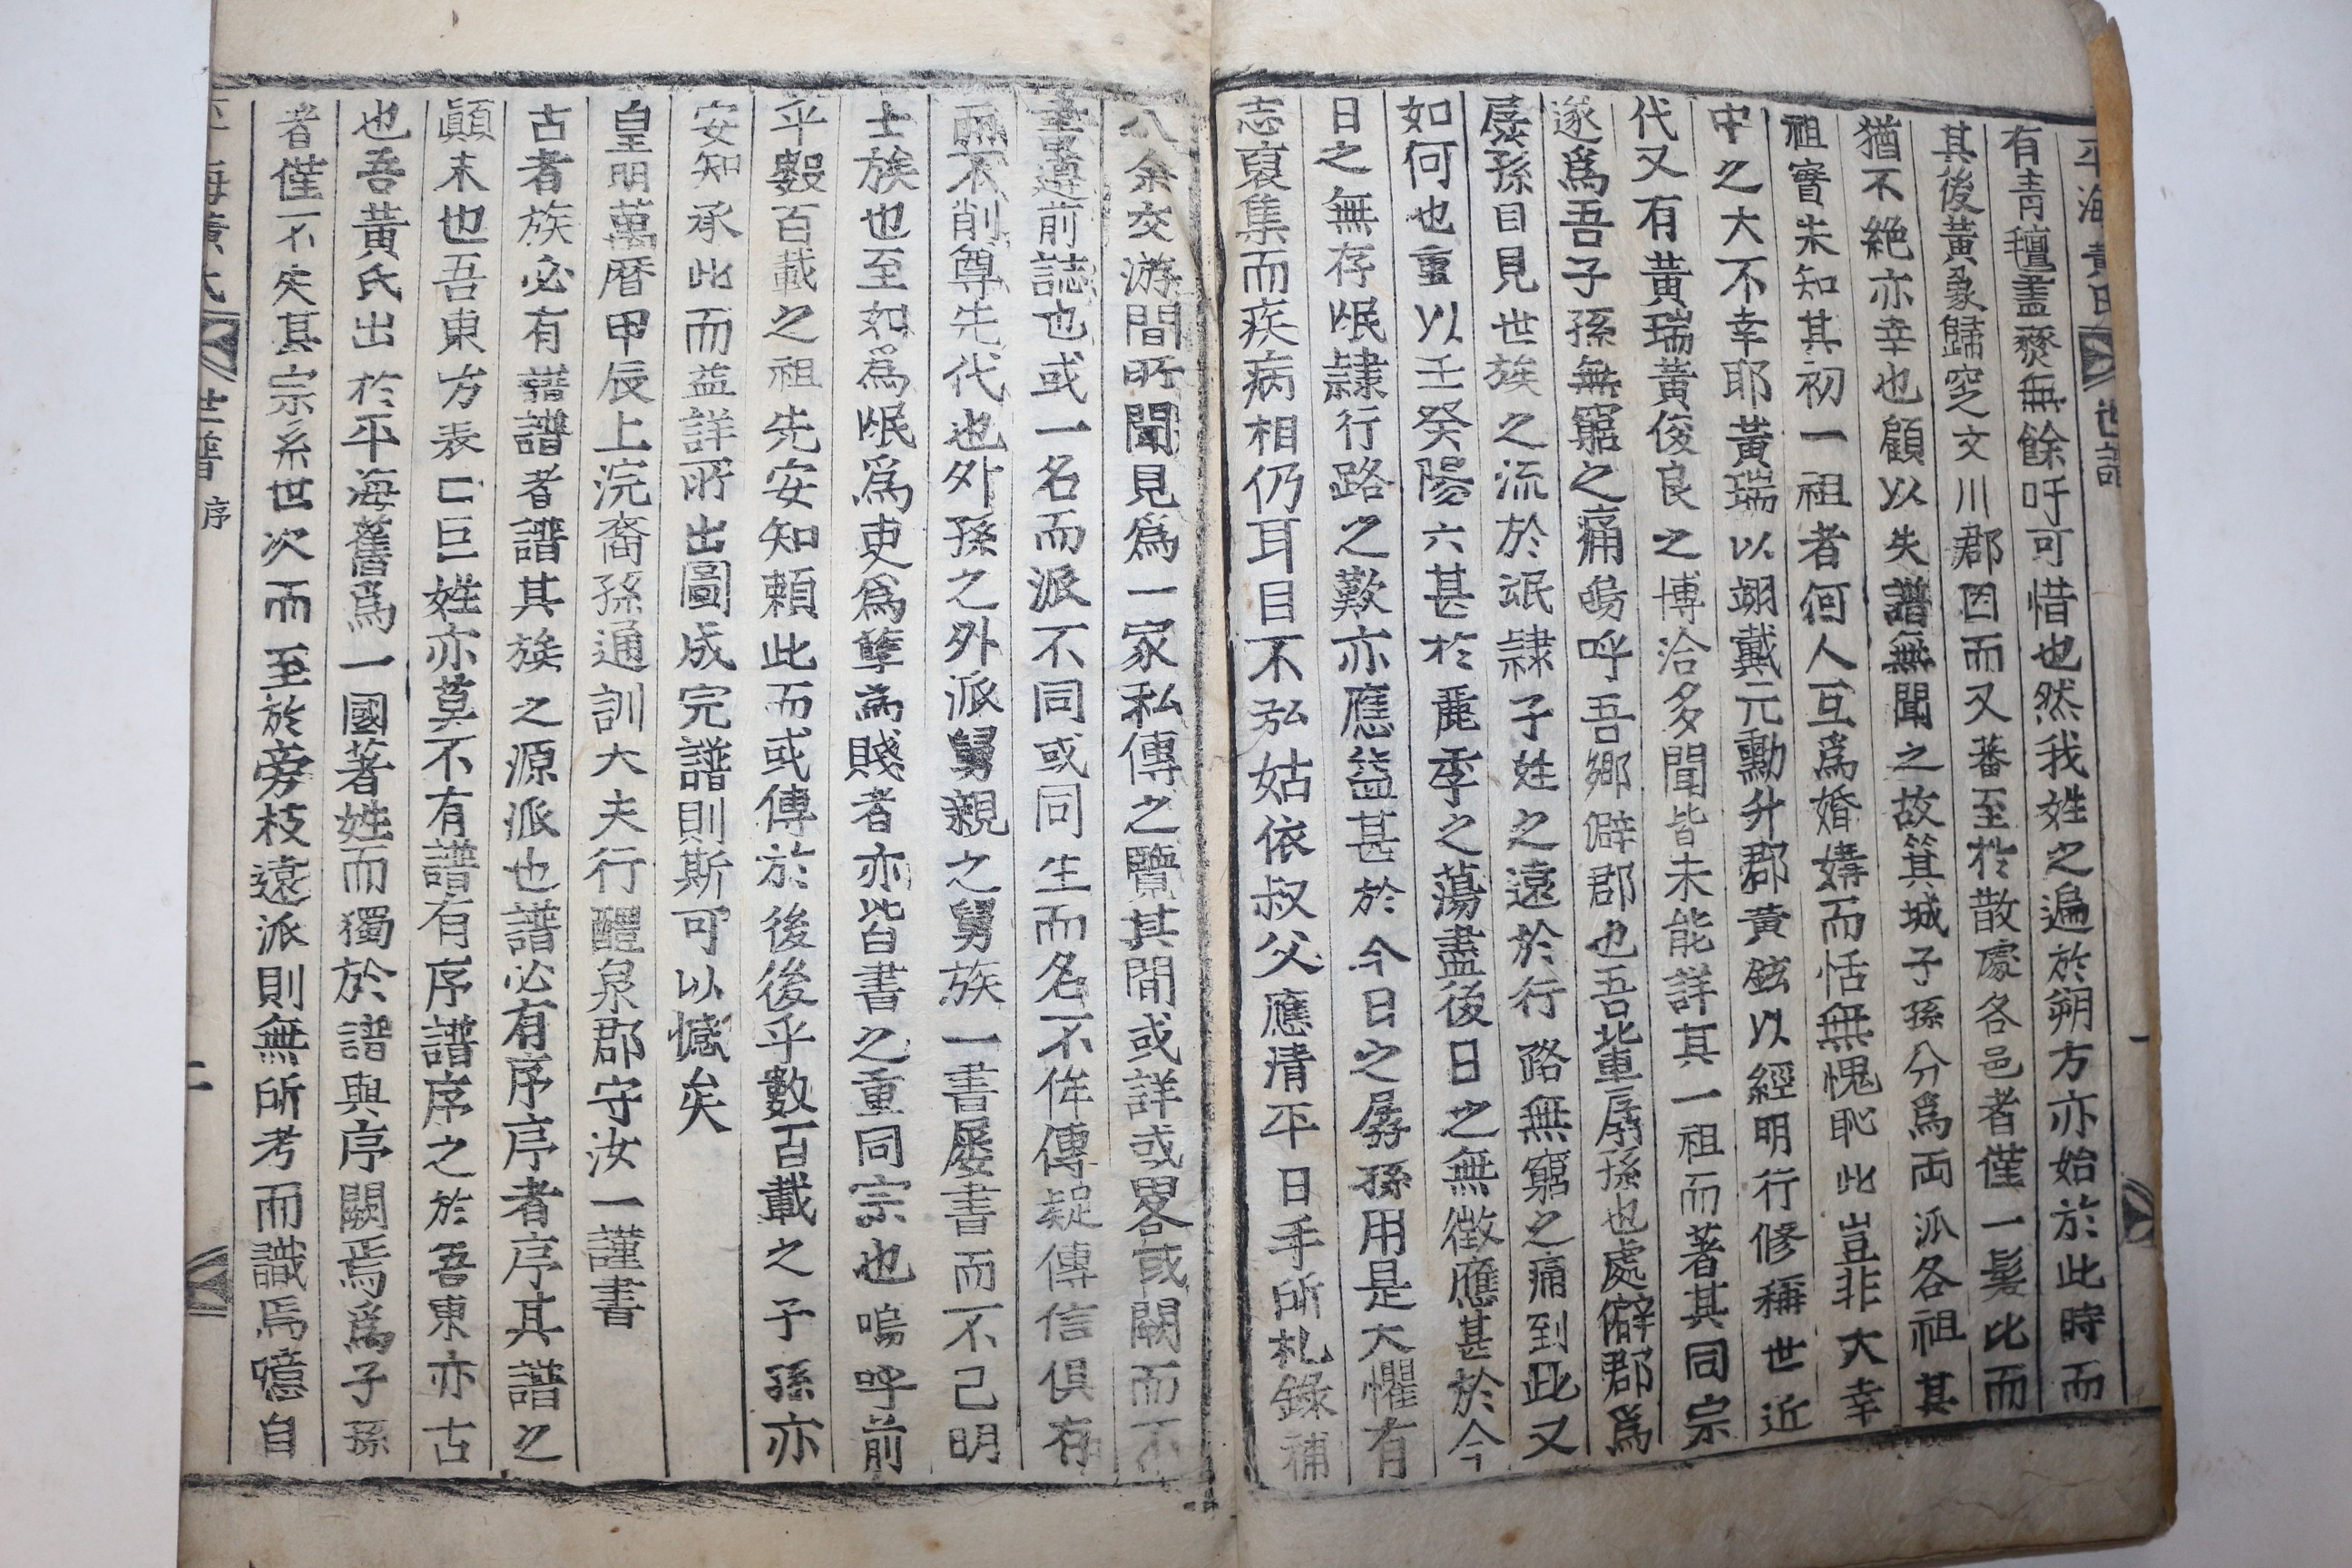 平海黃氏 世譜 一
有靑氊盡燹無餘吁可惜也然我姓之遍於朔方亦始於此時而
其後黃彖歸窆文川郡因而又蕃至於散處各邑者僅一髪比而
猶不絶亦幸也顧以失譜無聞之故箕城子孫分爲両派各祖其
祖實未知其初一祖者何人互爲婚媾而恬無愧耻此豈非大幸
中之大不幸耶黃瑞以翊戴元勳升郡黃鉉以經明行修稱世近
代又有黃瑞黃俊良之博洽多聞皆未能詳其一祖而著其同宗
遂爲吾子孫無窮之痛嗚呼吾鄉僻郡也吾輩孱孫也處僻郡爲
孱孫目見世族之流於氓隷子姓之遠於行路無窮之痛到此又
如何也重以壬癸陽六甚於麗季之蕩盡後日之無徵應甚於今
日之無存氓隷行路之歎亦應益甚於今日之孱孫用是大懼有
志裒集而疾病相仍耳目不弘姑依叔父應清平日手所札錄補
八余交游間所聞見爲一家私傳之覽其間或詳或畧或闕而不
書遵前誌也或一名而派不同或同生而名不侔傳疑傳信俱存
而不削尊先代也外孫之外派舅親之舅族一書屢書而不己明
士族也至如爲氓爲吏爲孼爲賤者亦皆書之重同宗也嗚呼前
乎數百載之祖先安知賴此而或傳於後後乎數百載之子孫亦
安知承此而益詳所出圖成完譜則斯可以憾矣
皇明萬曆甲辰上浣裔孫通訓大夫行醴泉郡守汝一謹書
古者族必有譜譜者譜其族之源派也譜必有序序者序其譜之
顚末也吾東方表匸巨姓亦莫不有譜有序譜序之於吾東亦古
也吾黃氏出於平海舊爲一國著姓而獨於譜與序闕焉爲子孫
者僅不失其宗系世次而至於旁枝遠派則無所考而識焉噫自
平海黃氏 世譜 序 二